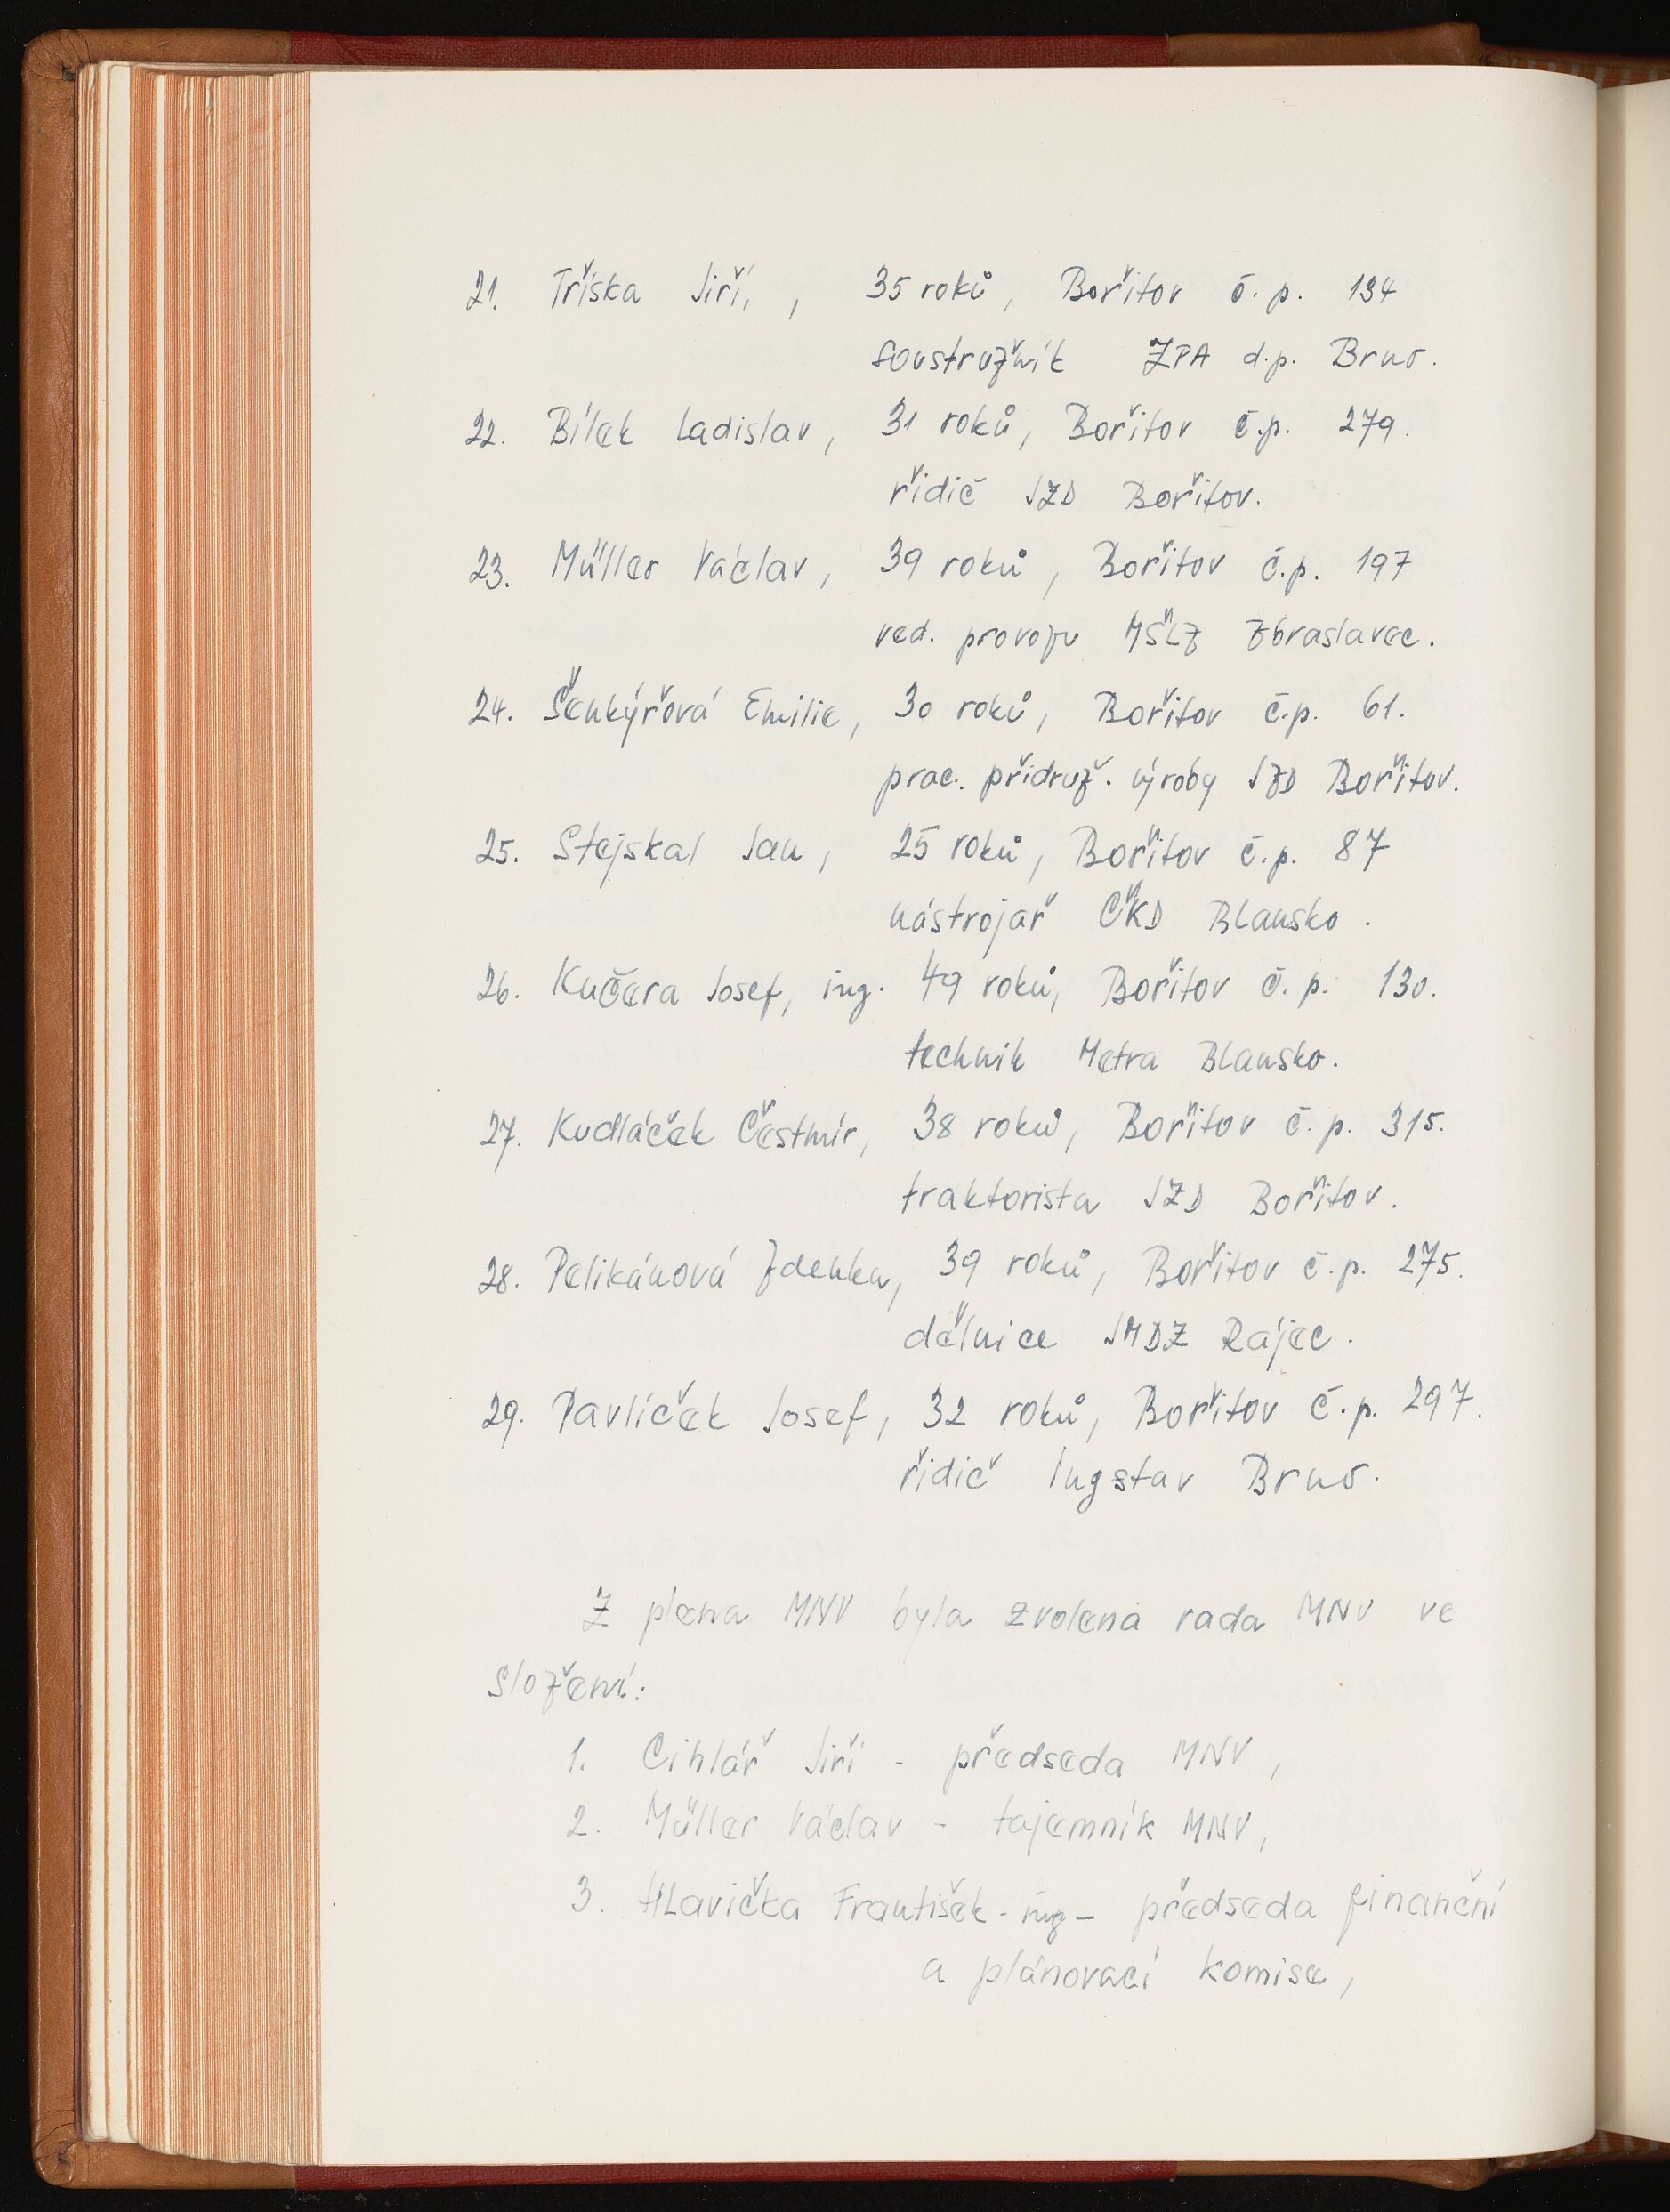 21. Tříska Jiří, , 35 roků, Bořitov č.p. 134
soustružník ZPA d.p. Brno.
22. Bílek Ladislav, 31 roků, Bořitov č.p. 279.
řidič JZD Bořitov.
23. Müller Václav, 39 roků, Bořitov č.p. 197
ved. provozu MŠLZ Zbraslavec.
24. Šenkýřová Emilie, 30 roků, Bořitov č.p. 61.
prac. přidruž. výroby JZD Bořitov.
25. Stejskal Jan, 25 roků, Bořitov č.p. 87
nástrojař ČKD Blansko.
26. Kučera Josef, ing. 49 roků, Bořitov č.p. 130.
technik Metra Blansko.
27. Kudláček Čestmír, 38 roků, Bořitov č.p. 315.
traktorista JZD Bořitov.
28. Pelikánová Zdenka, 39 roků, Bořitov č.p. 275.
dělnice JMDZ Rájec.
29. Pavlíček Josef, 32 roků, Bořitov č.p. 297.
řidič Ingstav Brno.
Z plena MNV byla zvolena rada MNV ve
složení:
1. Cihlář Jiří - předseda MNV,
2. Müller Václav - tajemník MNV,
3. Hlavička František - ing - předseda finanční
a plánovací komise,